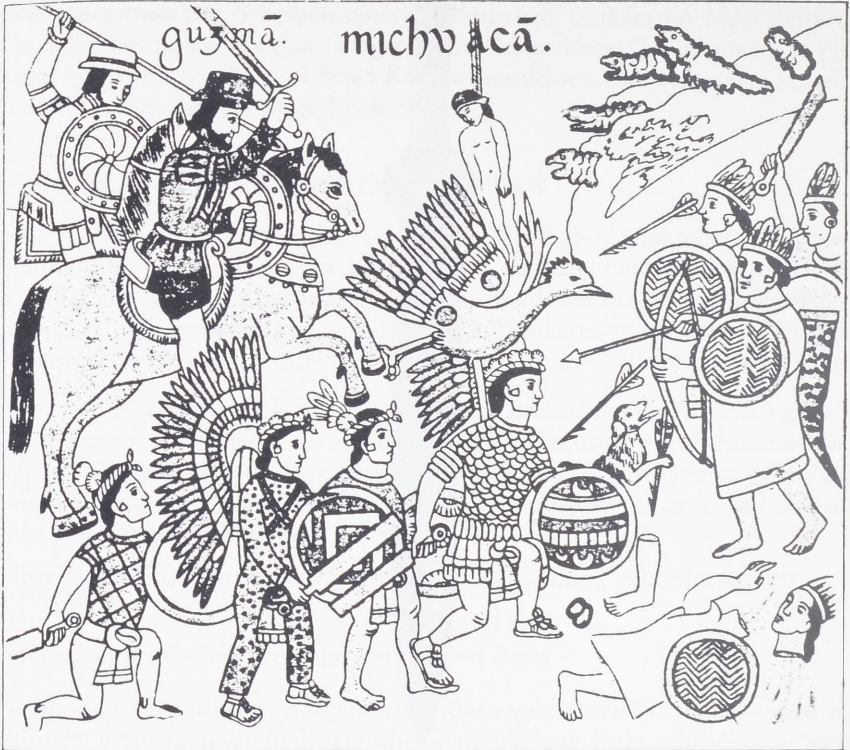 guzmā. michuacā.